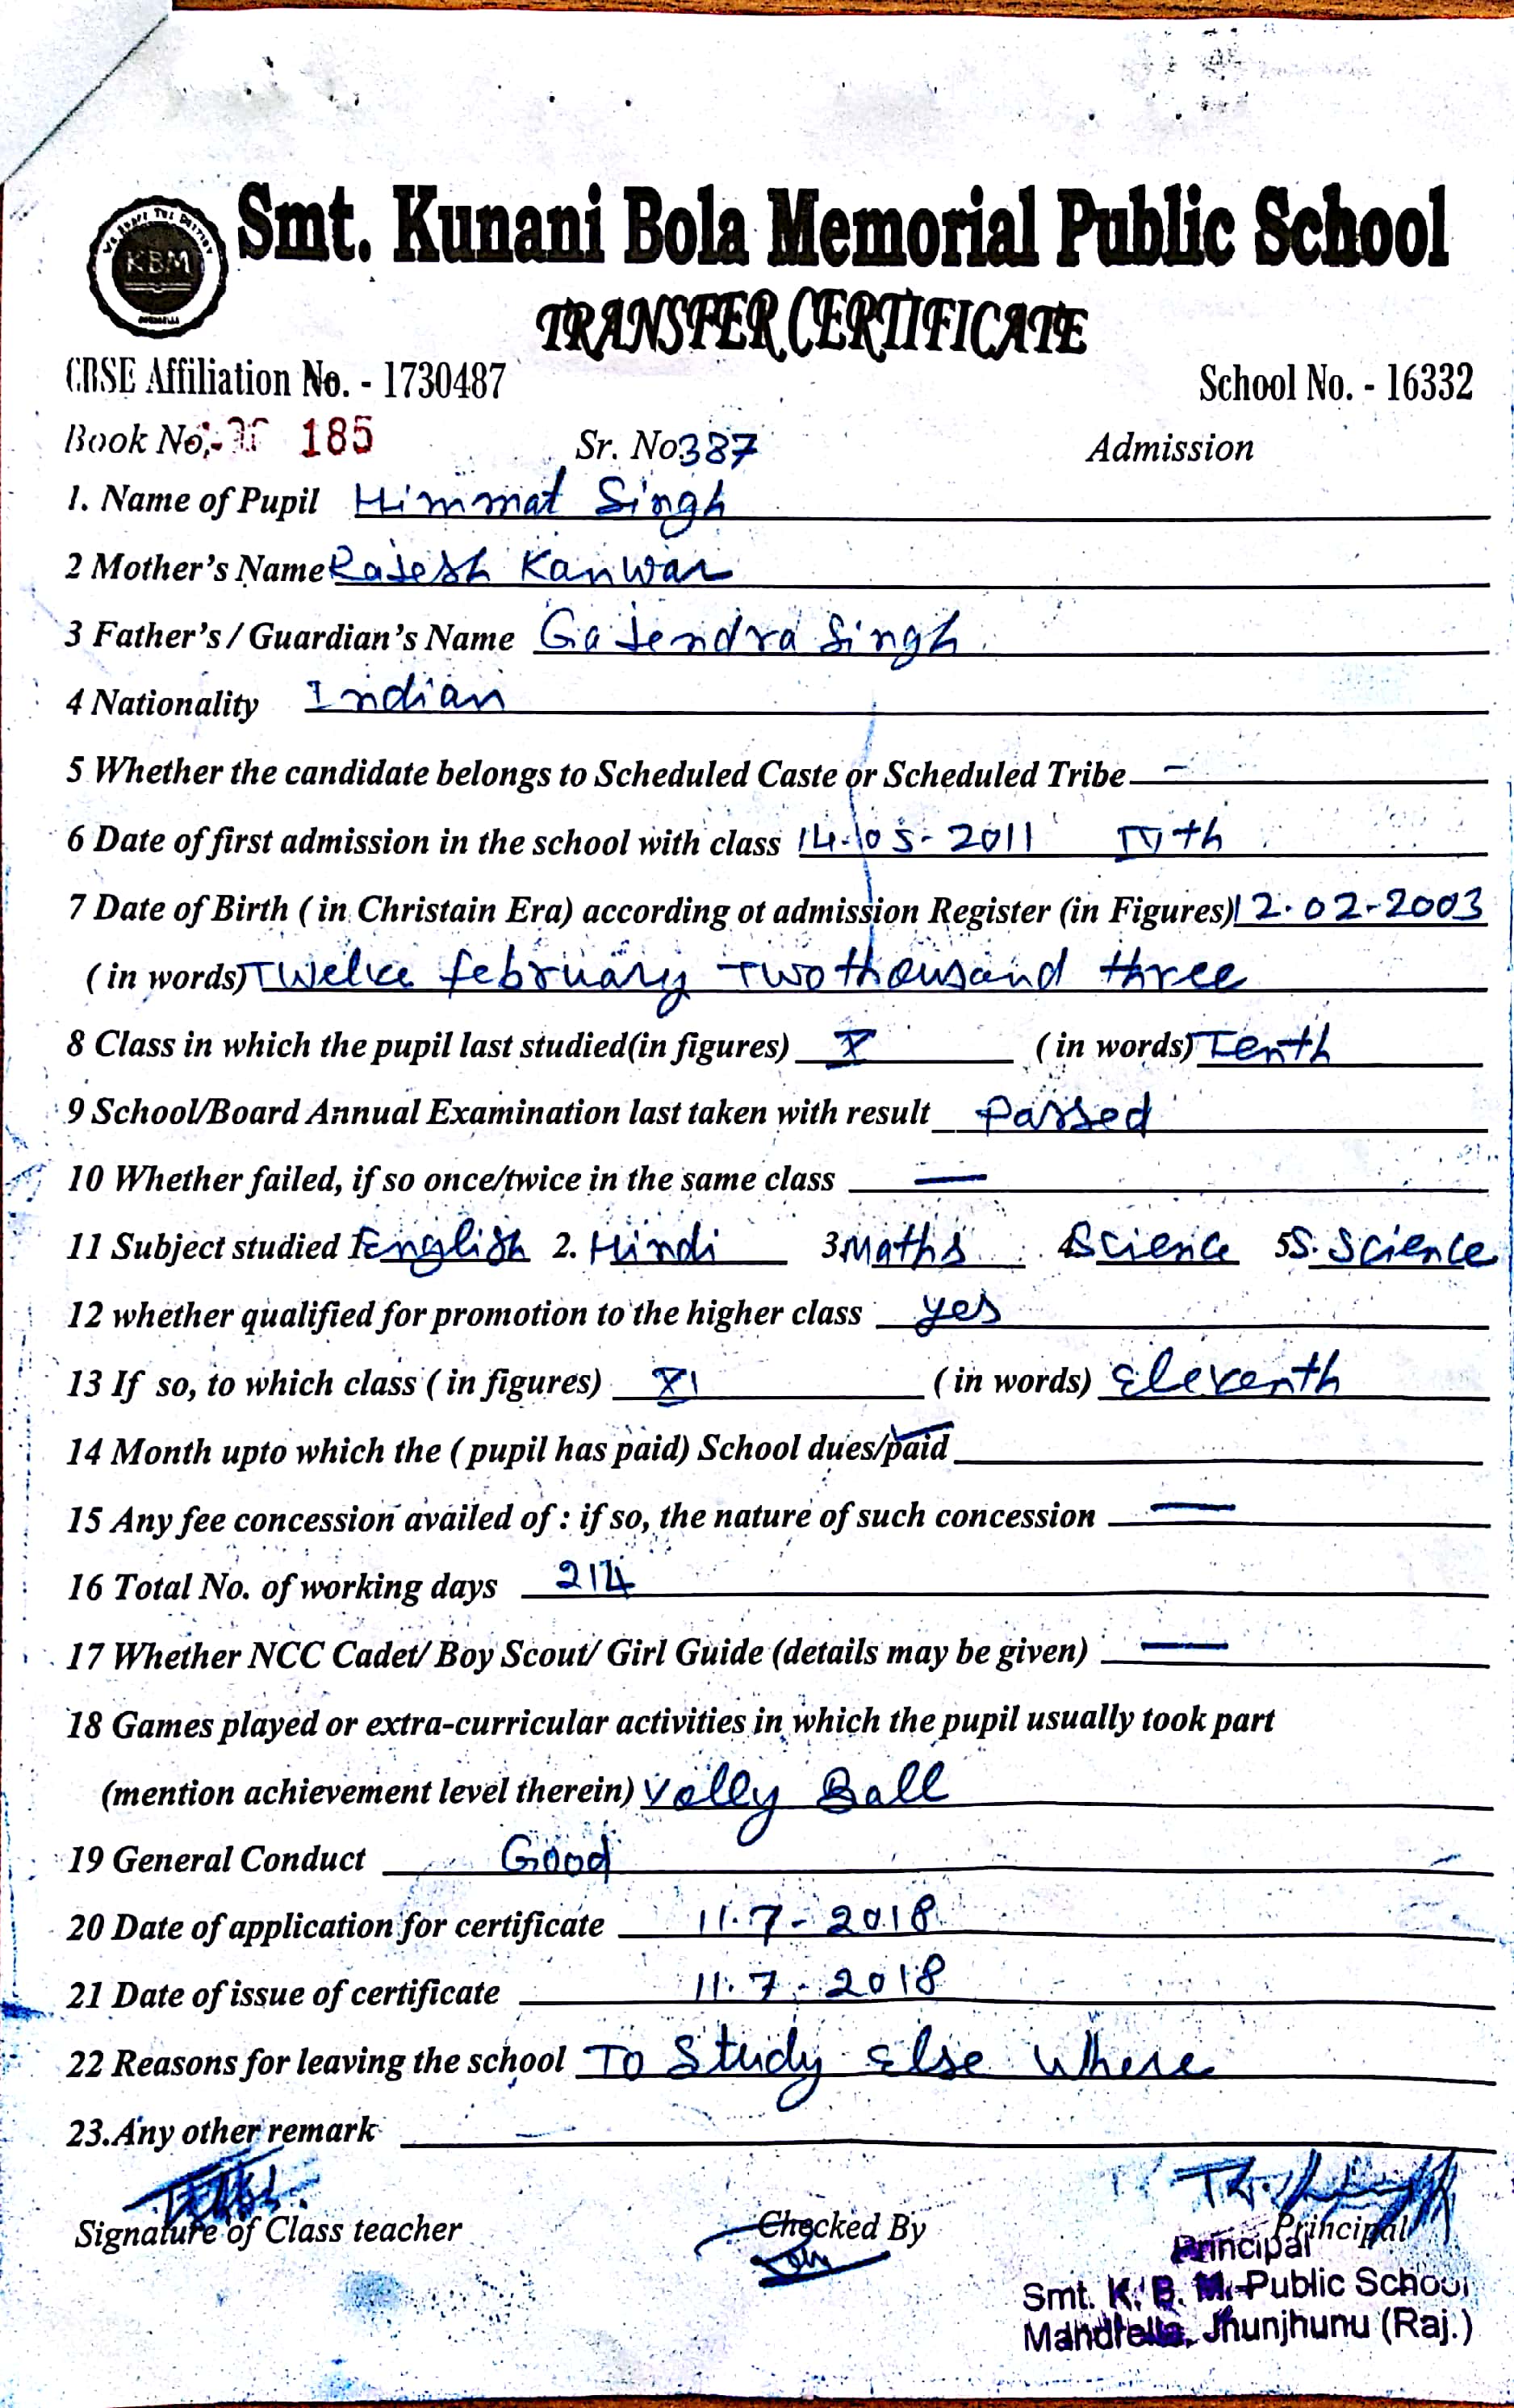 KBM
Smt. Kunani Bola Memorial Public School
TRANSFER CERTIFICATE
CBSE Affiliation No. - 1730487 School No. - 16332
Book No.- 185 Sr. No 387 Admission
1. Name of Pupil Himmat Singh
2 Mother's Name Rajesh Kanwar
3 Father's / Guardian's Name Gajendra Singh
4 Nationality Indian
5 Whether the candidate belongs to Scheduled Caste or Scheduled Tribe -
6 Date of first admission in the school with class 14-05-2011 IVth
7 Date of Birth ( in Christain Era) according ot admission Register (in Figures) 12.02-2003
( in words) Twelve february Two thousand three
8 Class in which the pupil last studied(in figures) X ( in words) Tenth
9 School/Board Annual Examination last taken with result Passed
10 Whether failed, if so once/twice in the same class —
11 Subject studied 1 English 2. Hindi 3. Maths 4 Science 5 S. Science
12 whether qualified for promotion to the higher class yes
13 If so, to which class ( in figures) XI ( in words) Eleventh
14 Month upto which the ( pupil has paid) School dues/paid
15 Any fee concession availed of : if so, the nature of such concession —
16 Total No. of working days 214
17 Whether NCC Cadet/ Boy Scout/ Girl Guide (details may be given) —
18 Games played or extra-curricular activities in which the pupil usually took part
(mention achievement level therein) Volly Ball
19 General Conduct Good
20 Date of application for certificate 11.7-2018
21 Date of issue of certificate 11.7-2018
22 Reasons for leaving the school To Study Else Where
23.Any other remark —
Signature of Class teacher Checked By Principal
Principal
Smt. K. B. M. Public School
Mandrella, Jhunjhunu (Raj.)